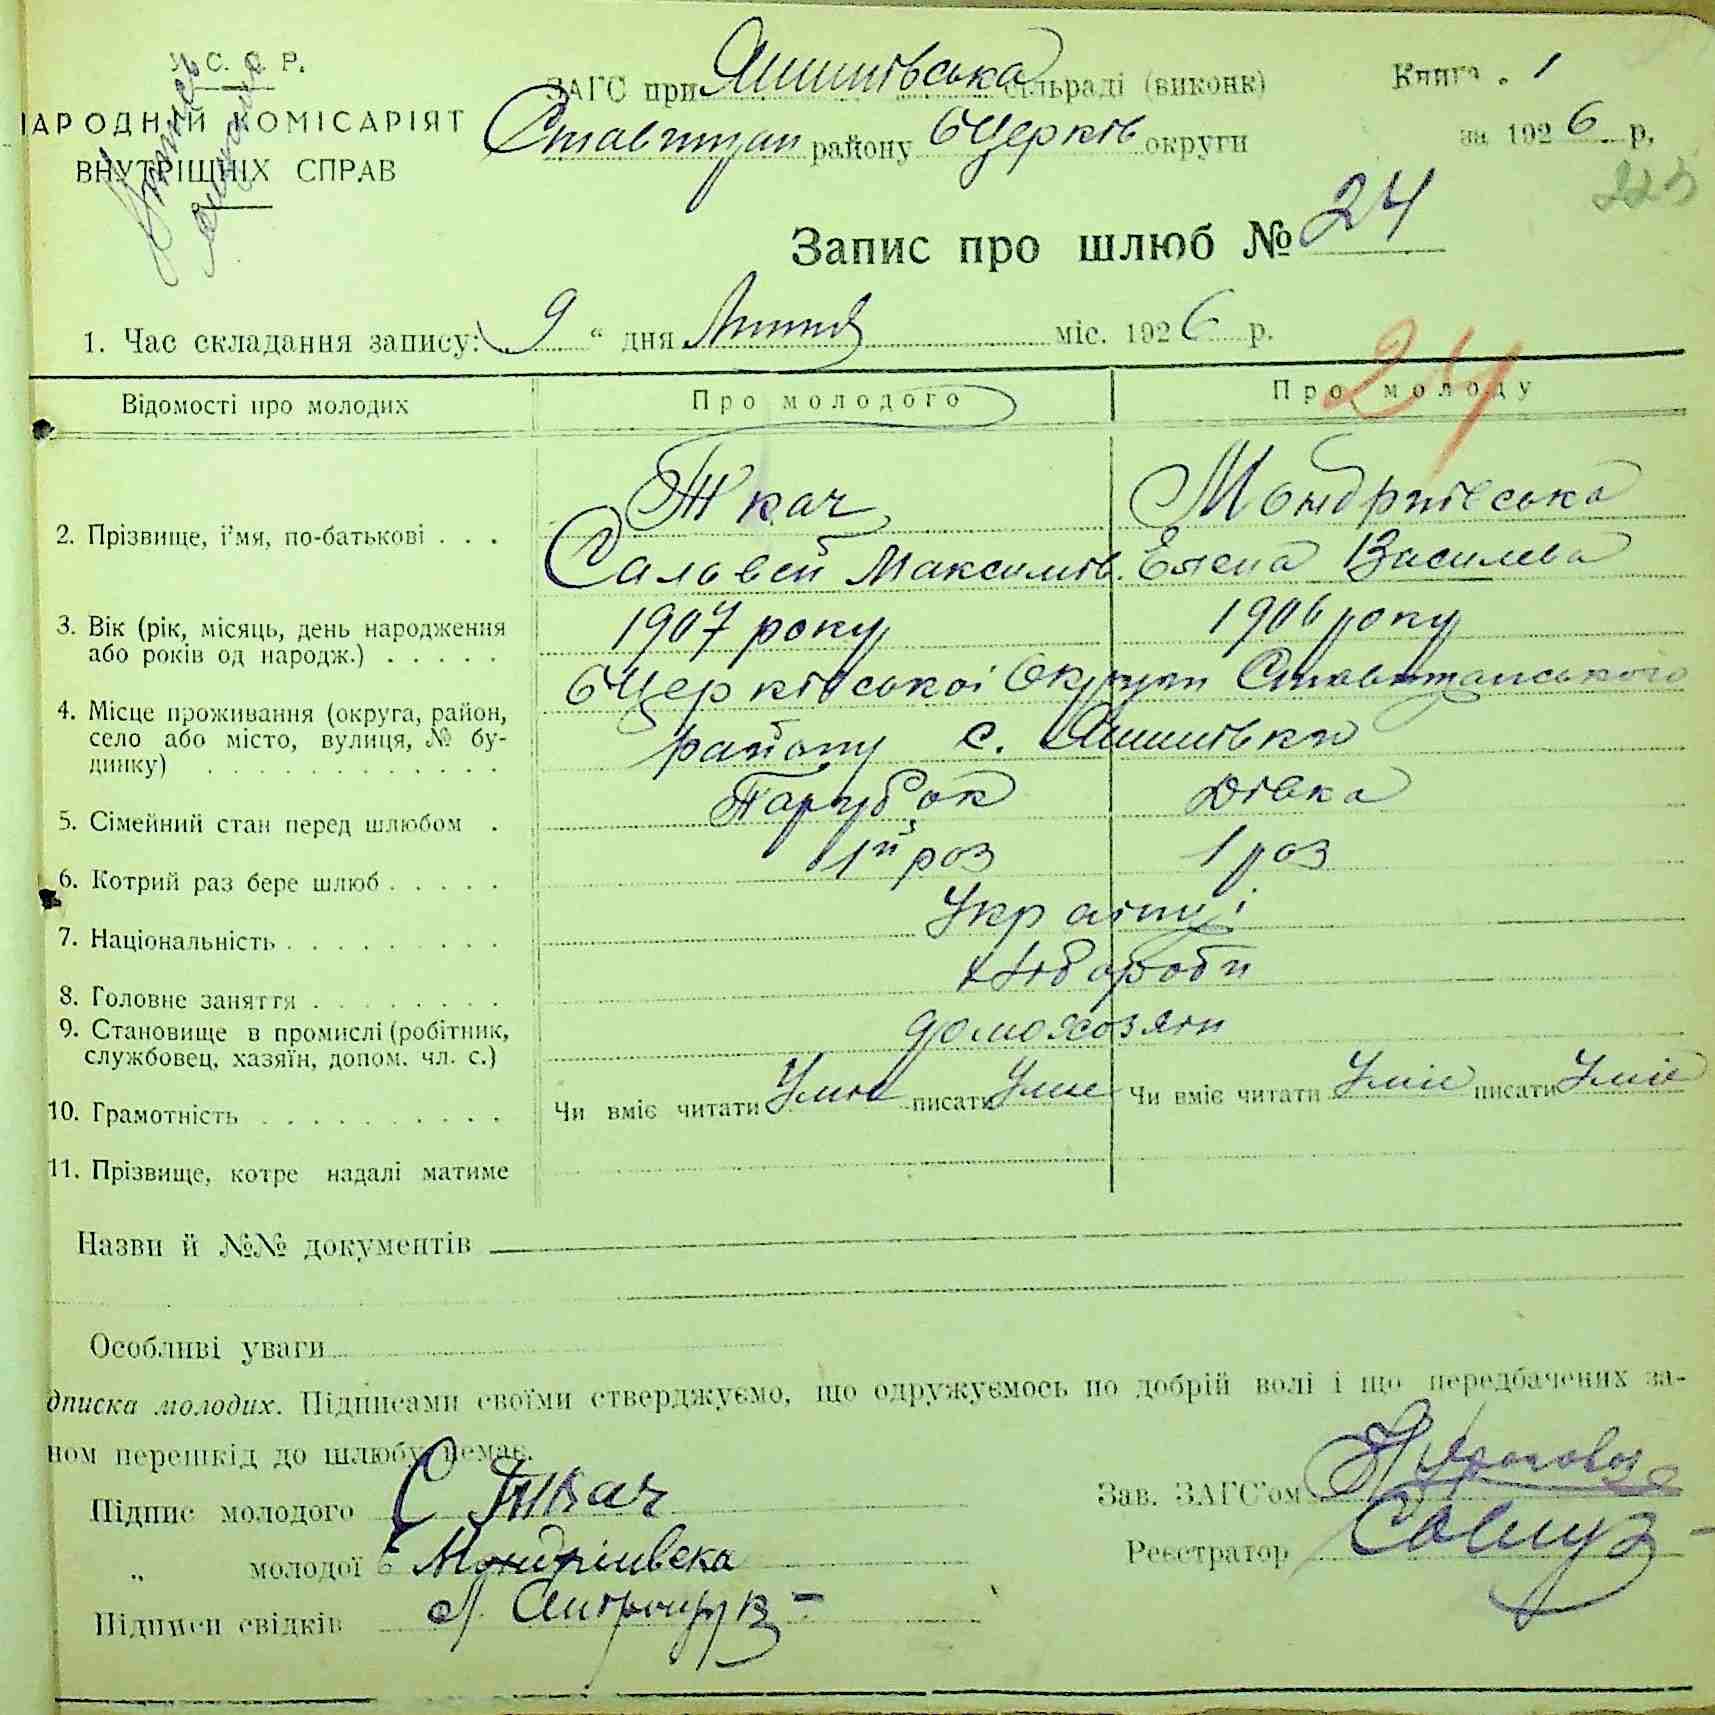 У. С. С. Р.
НАРОДНИЙ КОМІСАРІЯТ
ВНУТРІШНІХ СПРАВ
ЗАГС при Яшшівська сільраді (виконк)
Ставищан району БЦерків округи
Книга 1
за 1926 р.
223
Запис про шлюб № 24
1. Час складання запису: 9 “ дня Липня міс. 1926 р.
24
Відомості про молодих Про молодого Про молоду
Ткач Мондриївська
2. Прізвище, і’мя, по-батькові . . . Саловей Максимів. Елена Василева
3. Вік (рік, місяць, день народження або років од народж.) . . . . . 1907 року 1906 року
4. Місце проживання (округа, район, село або місто, вулиця, № будинку) . . . . . . . . . . . . БЦерківської Округи Ставищанського
району с.
5. Сімейний стан перед шлюбом . Парубок Дівка
6. Котрий раз бере шлюб . . . . . 1й раз 1 раз
7. Національність . . . . . . . . . Українці
8. Головне заняття . . . . . . . . Хлібороби
9. Становище в промислі (робітник, службовец, хазяїн, допом. чл. с.) домохозяїн
10. Грамотність . . . . . . . . . . Чи вміє читати Уміє писати Уміє Чи вміє читати Уміє писати Уміє
11. Прізвище, котре надалі матиме
Назви й №№ документів
Особливі уваги
дписка молодих. Підписами своїми стверджуємо, що одружуємось по добрій волі і що передбачених за-
ном перешкід до шлюбу немає.
Підпис молодого С Ткач
Зав. ЗАГС’ом
„ молодої Е Мондріивска
Реєстратор
Підписи свідків